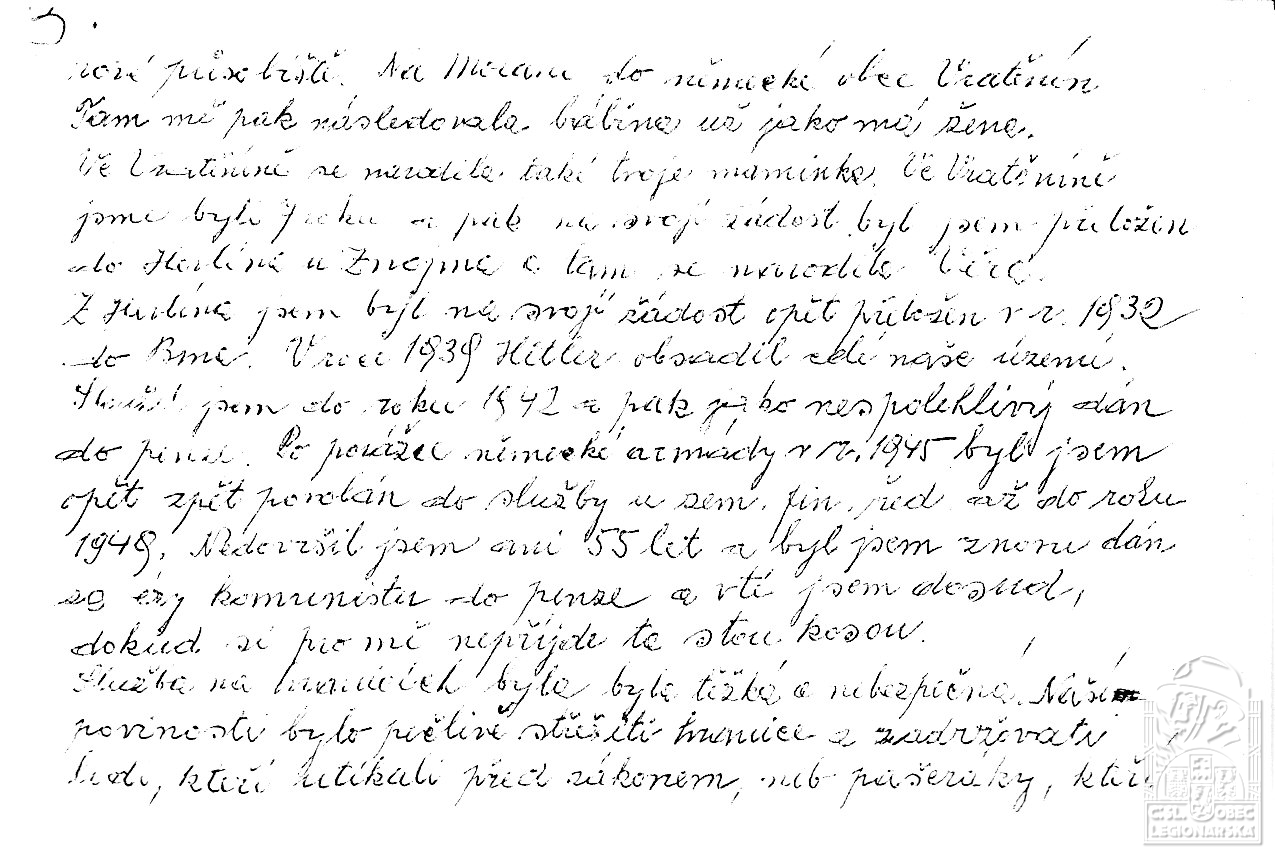 5.
nové působiště. Na Moravu do německé obce Vratěnín
Tam mě pak následovala bábina už jako má žena.
Ve Vratěníně se narodila také tvoje maminka. Ve Vratěníně
jsme byli 7 roků a pak na svoji žádost byl jsem přeložen
do Hevlína u Znojma a tam se narodila Věra.
Z Hevlína jsem byl na svoji žádost opět přeložen v r. 1932
do Brna. V roce 1939 Hitler obsadil celé naše území.
Sloužil jsem do roku 1942 a pak jako nespolehlivý dán
do penze. Po porážce německé armády v r. 1945 byl jsem
opět zpět povolán do služby u zem. fin. řed. až do roku
1948. Nedovršil jsem ani 55 let a byl jsem znovu dán
za éry komunistu do penze a v té jsem dosud,
dokud si pro mě nepříjde ta stou kosou.
Služba na hranicích byla byla těžká a nebezpečná. Naší
povinosti bylo pečlivě střežiti hranice a zadržovati
lidi, kteří utíkali před zákonem, neb pašeráky, kteří
ČSL. OBEC
LEGIONÁŘSKÁ